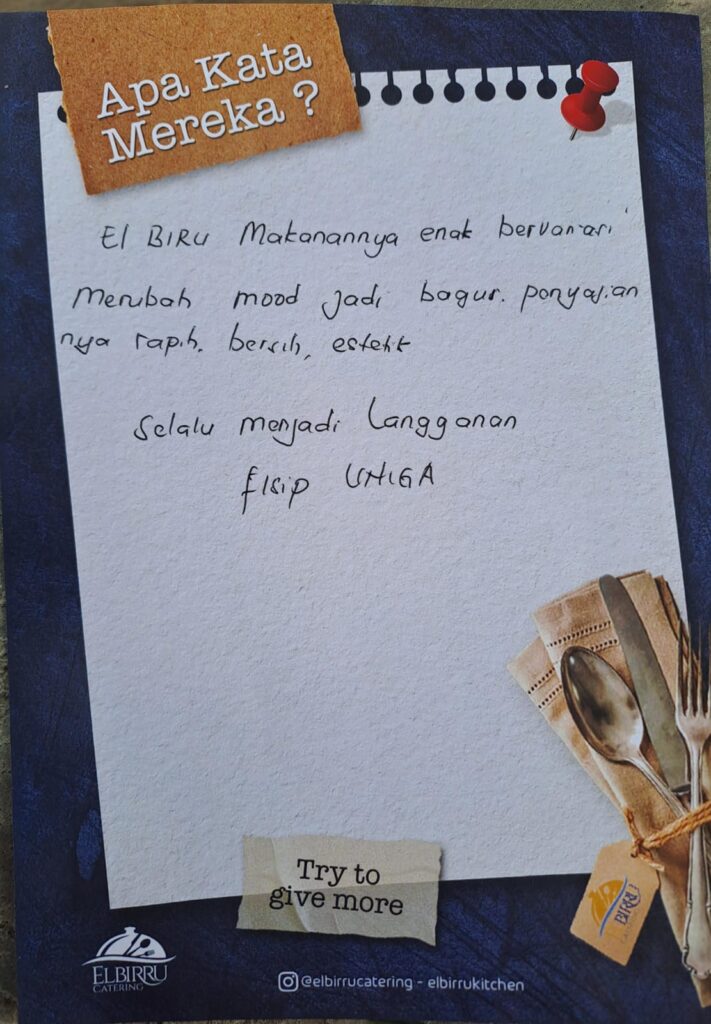 Apa Kata
Mereka ?
El BIRU Makanannya enak bervariasi
Merubah mood jadi bagus. penyajian
nya rapih. bersih, estetik
Selalu menjadi Langganan
fisip UNIGA
Try to
give more
BIRRU
ELBIRRU
CATERING
@elbirrucatering - elbirrukitchen